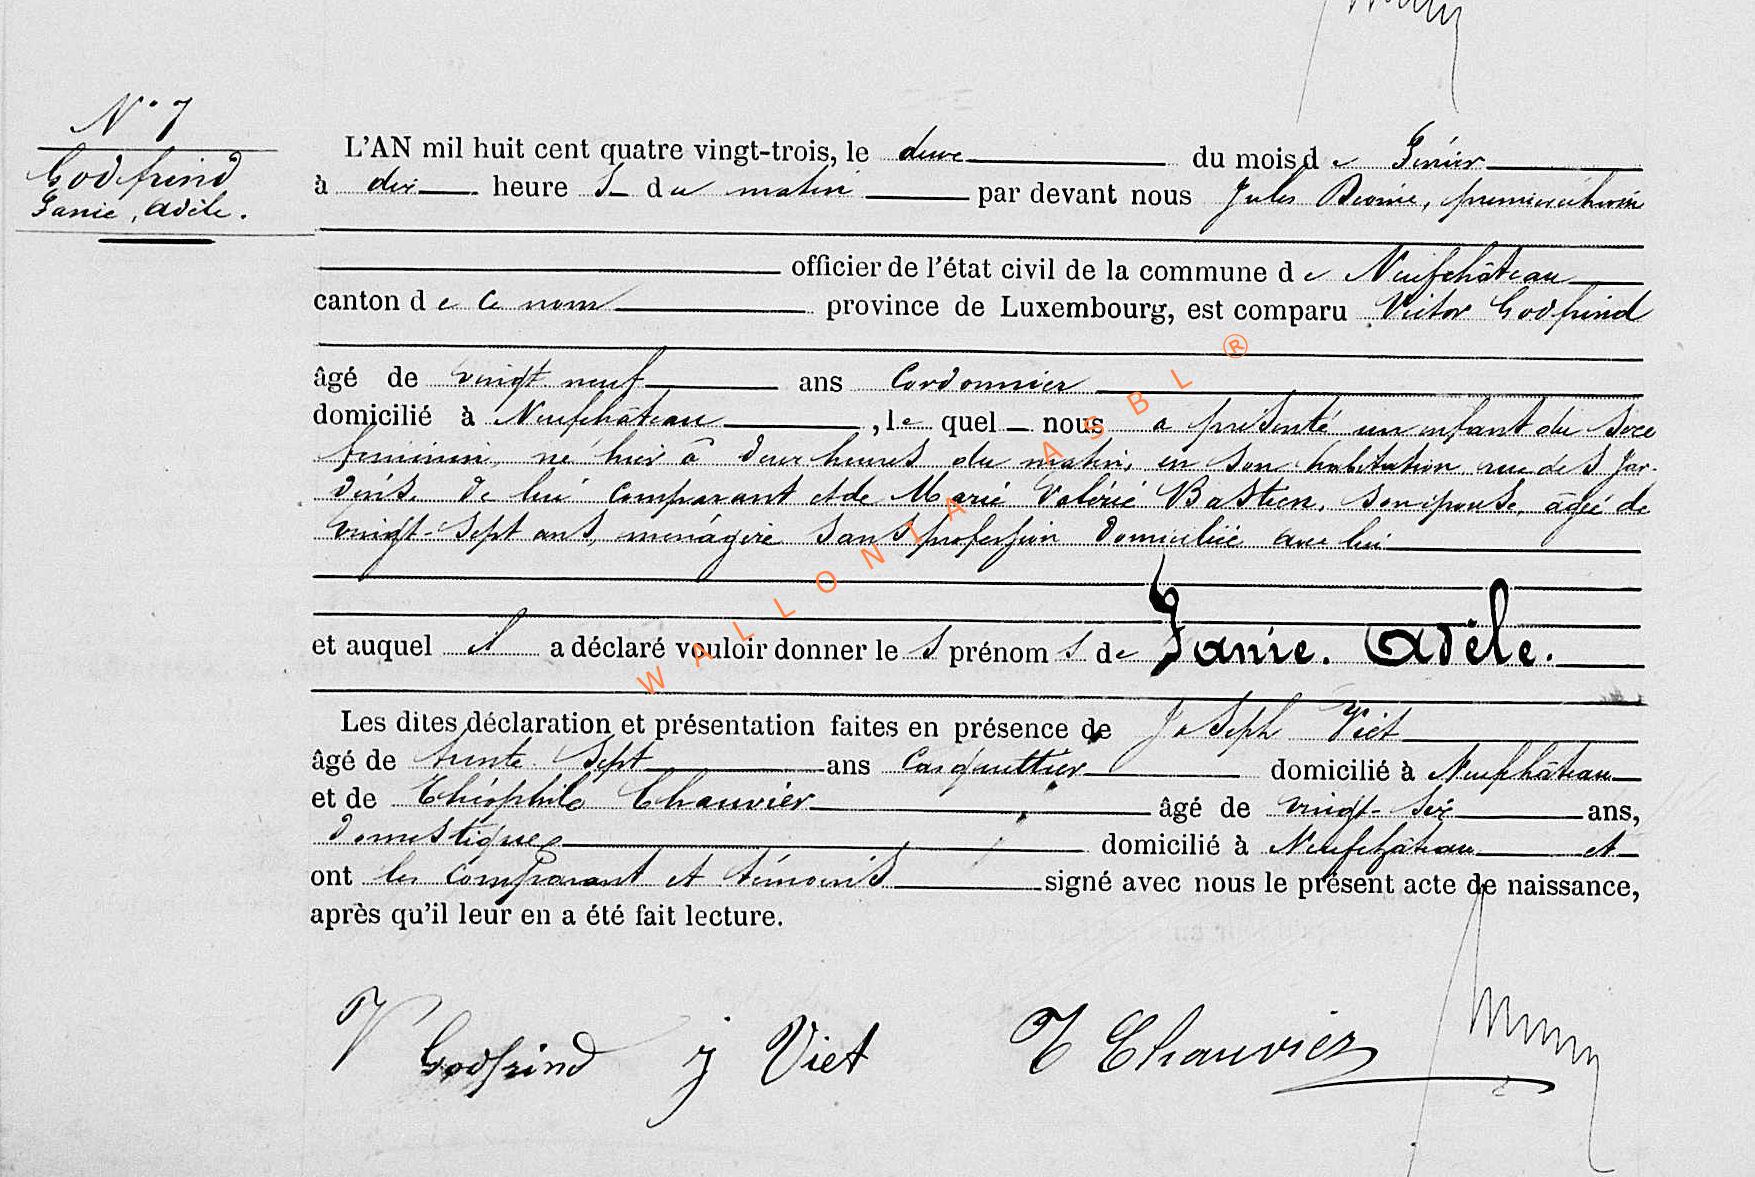 N° 7
Godfrind
Fanie, Adèle.
L'AN mil huit cent quatre vingt-trois, le deux du mois de Février
à dix heures du matin par devant nous Jules premier échevin
officier de l'état civil de la commune de Neufchâteau
canton de ce nom province de Luxembourg, est comparu Victor Godfrind
âgé de vingt neuf ans Cordonnier
domicilié à Neufchâteau, le quel nous a présenté un enfant du sexe
féminin, né hier à deux heures du matin, en son habitation rue des Jar-
dins, de lui comparant et de Marie Valérie Bastien, son épouse, âgée de
vingt-sept ans, ménagère sans profession domiciliée avec lui
et auquel il a déclaré vouloir donner les prénoms de Fanie. Adèle.
Les dites déclaration et présentation faites en présence de Joseph Viet
âgé de trente sept ans Casquettier domicilié à Neufchâteau
et de Théophile Chauvier âgé de vingt-six ans,
domestique domicilié à Neufchâteau et
ont les comparant et témoins signé avec nous le présent acte de naissance,
après qu'il leur en a été fait lecture.
V Godfrind J Viet T Chauvier
WALLONIA ASBL ®